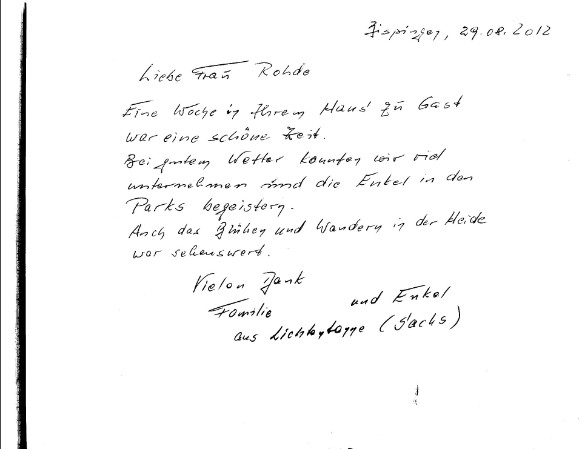 Bispingen, 29.08.2012
Liebe Frau Rohde
Eine Woche in Ihrem Haus zu Gast
war eine schöne Zeit.
Bei gutem Wetter konnten wir viel
unternehmen und die Enkel in den
Parks begeistern.
Auch das Blühen und Wandern in der Heide
war sehenswert.
Vielen Dank
Familie und Enkel
aus (Sachs)